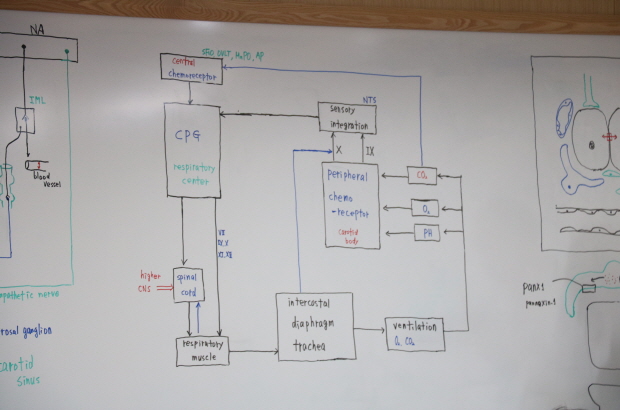 NA
IML
blood
vessel
pathetic nerve
rosal ganglion
carotid
sinus
SFO, OVLT, MnPO, AP
central
chemoreceptor
CPG
respiratory
center
VII
IX, X
XI, XII
higher
CNS
spinal
cord
respiratory
muscle
NTS
sensory
integration
X
IX
peripheral
chemo
-receptor
carotid
body
CO₂
O₂
PH
intercostal
diaphragm
trachea
ventilation
O₂ CO₂
panx1
pannaxin-1